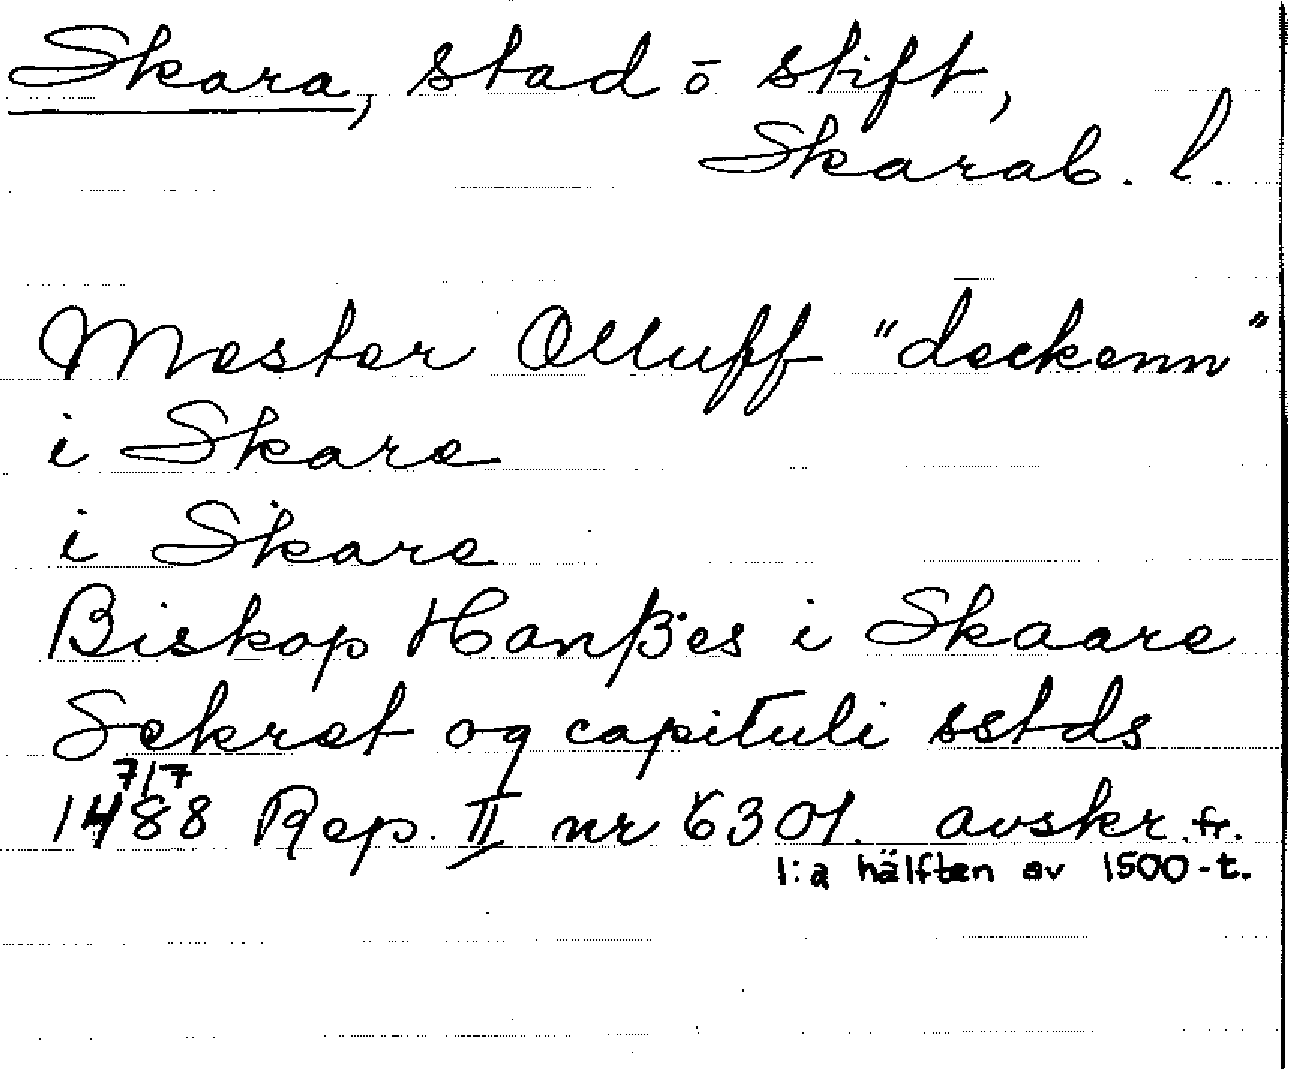 Skara, stad o stift,
Skarab. l.
Mester Olluff "deckenn"
i Skare
i Skare
Biskop Hanßes i Skaare
Sekret og capituli sstds
7/7
1488 Rep. II nr 6301. avskr. fr.
1:a hälften av 1500-t.